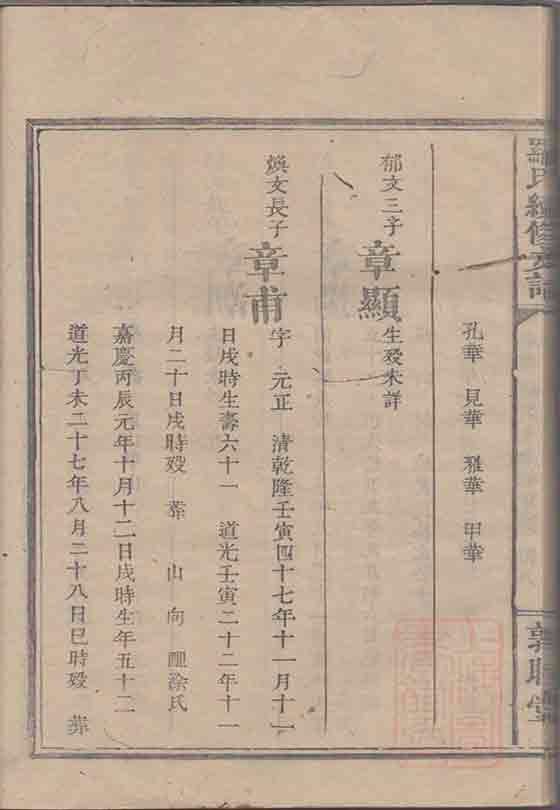 羅氏續修支譜
敦睦堂
孔華 見華 雅華 甲華
郁文三子 章顯 生殁未詳
煥文長子 章甫 字 元正 清乾隆壬寅四十七年十一月十一
日戌時生壽六十一 道光壬寅二十二年十一
月二十日戌時殁 葬 山 向 配涂氏
嘉慶丙辰元年十月十二日戌時生年五十二
道光丁未二十七年八月二十八日巳時殁 葬